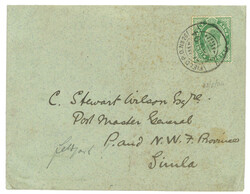 C. Stewart Wilson Esqre
Post Master General
P. and N. W. F. Provinces
Simla